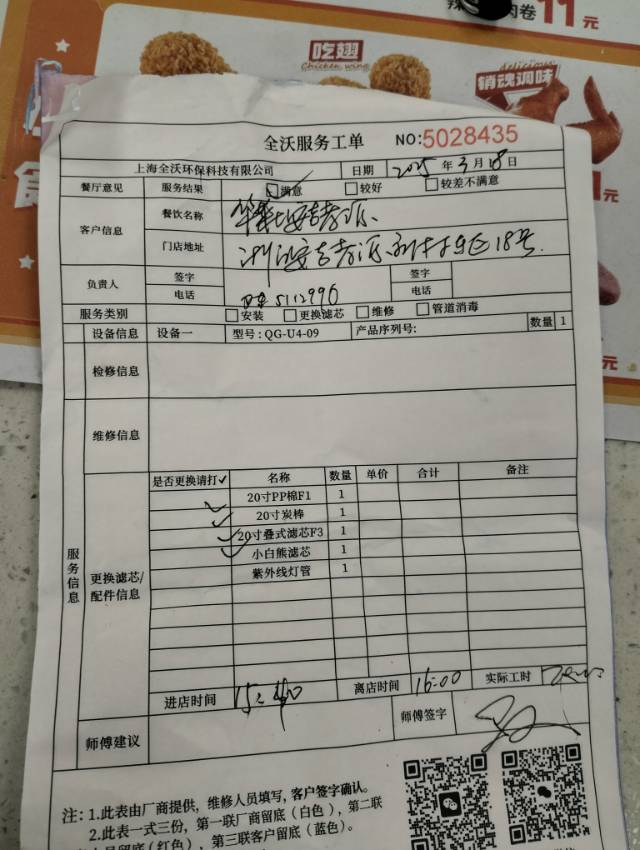 肉卷11元
吃翅
Chicken wing
delicious
销魂调味
全沃服务工单 NO:5028435
上海全沃环保科技有限公司 日期 2025年3月18日
餐厅意见 服务结果 满意 较好 较差不满意
客户信息 餐饮名称
门店地址 18号
负责人 签字 签字
电话 5112996 电话
服务类别 安装 更换滤芯 维修 管道消毒
设备信息 设备一 型号:QG-U4-09 产品序列号: 数量 1
检修信息
维修信息
服务信息
更换滤芯/配件信息
是否更换请打✓ 名称 数量 单价 合计 备注
✓ 20寸PP棉F1 1
✓ 20寸炭棒 1
✓ 20寸叠式滤芯F3 1
✓ 小白熊滤芯 1
紫外线灯管 1
进店时间 15:40 离店时间 16:00 实际工时
师傅建议 师傅签字
注:1.此表由厂商提供,维修人员填写,客户签字确认。
2.此表一式三份,第一联厂商留底(白色),第二联
留底(红色),第三联客户留底(蓝色)。